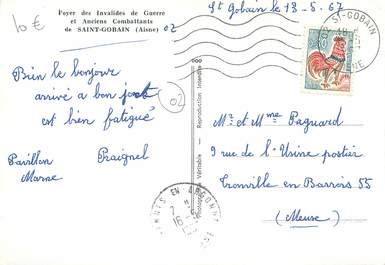 10 €
Foyer des Invalides de Guerre
et Anciens Combattants
de SAINT-GOBAIN (Aisne)
02
St Gobain le 18-5-67
02 ST-GOBAIN
Bien le bonjour
arrivé a bon port
est bien fatigué
02
Pavillon Praignel
Marne
Véritable - Reproduction Interdite
Mr et Mme Paguard
9 rue de l'Usine postier
Tronville en Barrois 55
(Meuse)
EN-ARGONNE